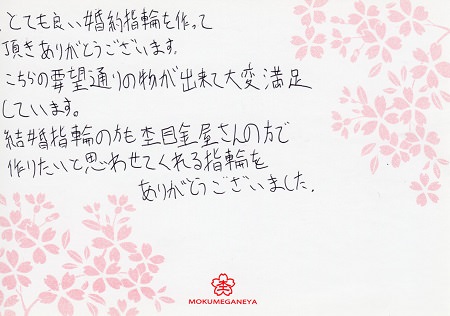 とても良い婚約指輪を作って
頂きありがとうございます。
こちらの要望通りの物が出来て大変満足
しています。
結婚指輪の方も杢目金屋さんの方で
作りたいと思わせてくれる指輪を
ありがとうございました.
MOKUMEGANEYA